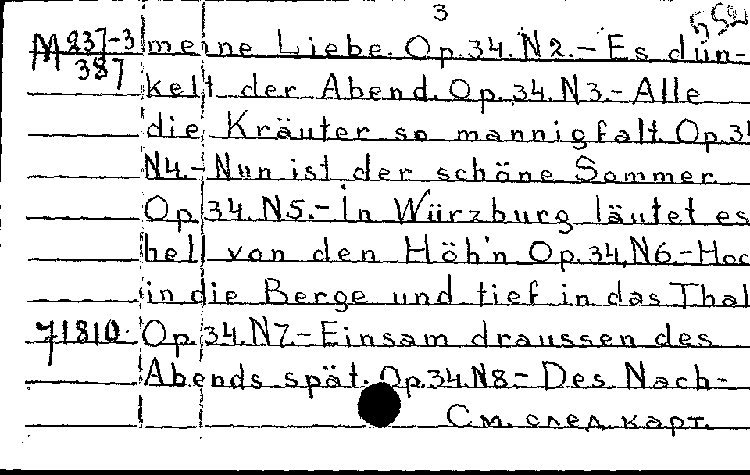 3 552
M 237-3 meine Liebe. Op.34.N2.-Es dun-
387 kelt der Abend. Op.34.N3.-Alle
die Kräuter so mannigfalt. Op.34
N4.-Nun ist der schöne Sommer
Op.34.N5.-In Würzburg läutet es
hell von den Höh'n Op.34.N6.-Hoc
in die Berge und tief in das Thal
71810 Op.34.N7.-Einsam draussen des
Abends spät. Op.34.N8-Des Nach-
См. след. карт.